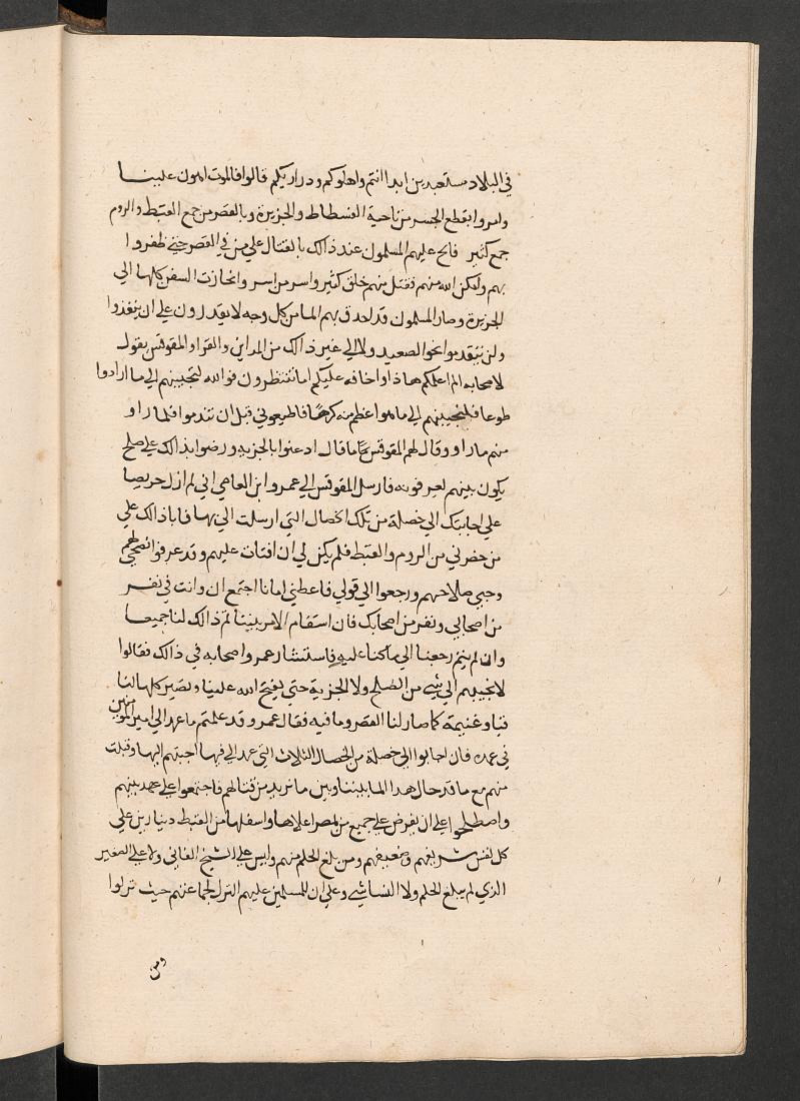 في البلاد مستعبدين ابدا انتم واهلوكم ودراريكم قالوا فالموت اهون علينا
وامروا بقطع الجسر من ناحية الفسطاط والجزيرة وبالقصر من جمع القبط والروم
جمع كثير فالح عليهم المسلمون عند ذالك بالقتال علي من في القصر حتي ظفروا
بهم وامكن الله منهم فقتل منهم خلق كثير واسر من اسر وانحازت السفن كلها الي
الجزيرة وصار المسلمون قد احدق بهم الما من كل وجه لا يقدرون علي ان ينفذوا
ولن يتقدموا نحو الصعيد ولا الي غير ذالك من المداين والقرا والمقوقس يقول
لاصحابه الم اعلمكم هاذا واخافه عليكم اما تنتظرون فوالله لتجيبنهم الي ما ارادوا
طوعا فلتجيبنهم الي ما هو اعظم منه كرها فاطيعوني قبل ان تندموا فلما راو
منهم ما راو وقال لهم المقوقس ما قال ادعنوا بالجزية ورضوا بذالك علي صلح
يكون بينهم يعرفونه فارسل المقوقس الي عمرو ابن العاصي اني لم ازل حريصا
علي اجابتك الي خصلة من تلك الخصال التي ارسلت الي بها فابا ذالك علي
من حضرني من الروم والقبط فلم يكن لي ان افتات عليهم وقد عرفوا نصحي لهم
وحبي صلاحهم ورجعوا الي قولي فاعطني امانا اجتمع ان وانت في نفر
من اصحابي ونفر من اصحابك فان استقام الامر بيننا تم ذالك لنا جميعا
وان لم يتم رجعنا الي ما كنا عليه فاستشار عمرو اصحابه في ذالك فقالوا
لا نجيبهم الي شي من الصلح ولا الجزية حتي يفتح الله علينا وتصير كلها لنا
فيا وغنيمة كما صار لنا القصر وما فيه فقال عمرو قد علمتم ما عهد الي امير المومنين
في عهده فان اجابوا الي خصلة من الخصال الثلاث التي عهد الي فيها اجبتهم اليها وقبلت
منهم مع ما قد حال هدا الما بيننا وبين ما نريد من قتالهم فاجتمعوا علي عهد بينهم
واصطلحوا علي ان يفرض علي جميع من بمصر اعلاها واسفلها من القبط دينارين علي
كل نفس شريفهم وضعيفهم ومن بلغ الحلم منهم وليس علي الشيخ الفاني ولا علي الصغير
الذي لم يبلغ الحلم ولا النسا شي وعلي ان للمسلمين عليهم النزل لجماعتهم حيث نزلوا
ومن